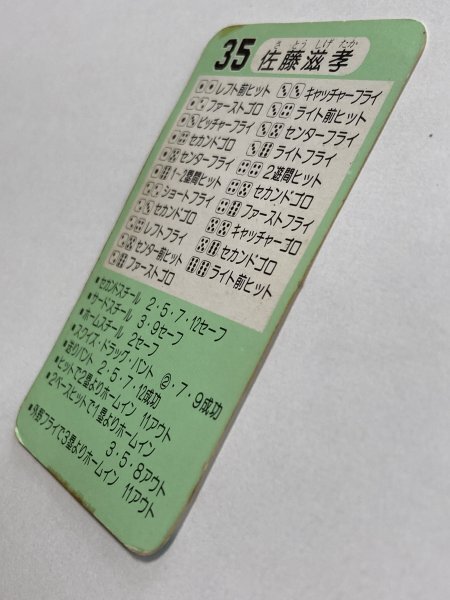 35 佐藤滋孝
さとう しげたか
レフト前ヒット キャッチャーフライ
ファーストゴロ ライト前ヒット
ピッチャーフライ センターフライ
セカンドゴロ ライトフライ
センターフライ 2遊間ヒット
1-2塁間ヒット セカンドゴロ
ショートフライ ファーストフライ
セカンドゴロ キャッチャーゴロ
レフトフライ セカンドゴロ
センター前ヒット ライト前ヒット
ファーストゴロ
•セカンドスチール 2・5・7・12セーフ
•サードスチール 3・9セーフ
•ホームスチール 2セーフ
•スクイズ・ドラッグ・バント ②・7・9成功
•送りバント 2・5・7・12成功
•ヒットで2塁よりホームイン 11アウト
•2ベースヒットで1塁よりホームイン 3・5・8アウト
•外野フライで3塁よりホームイン 11アウト